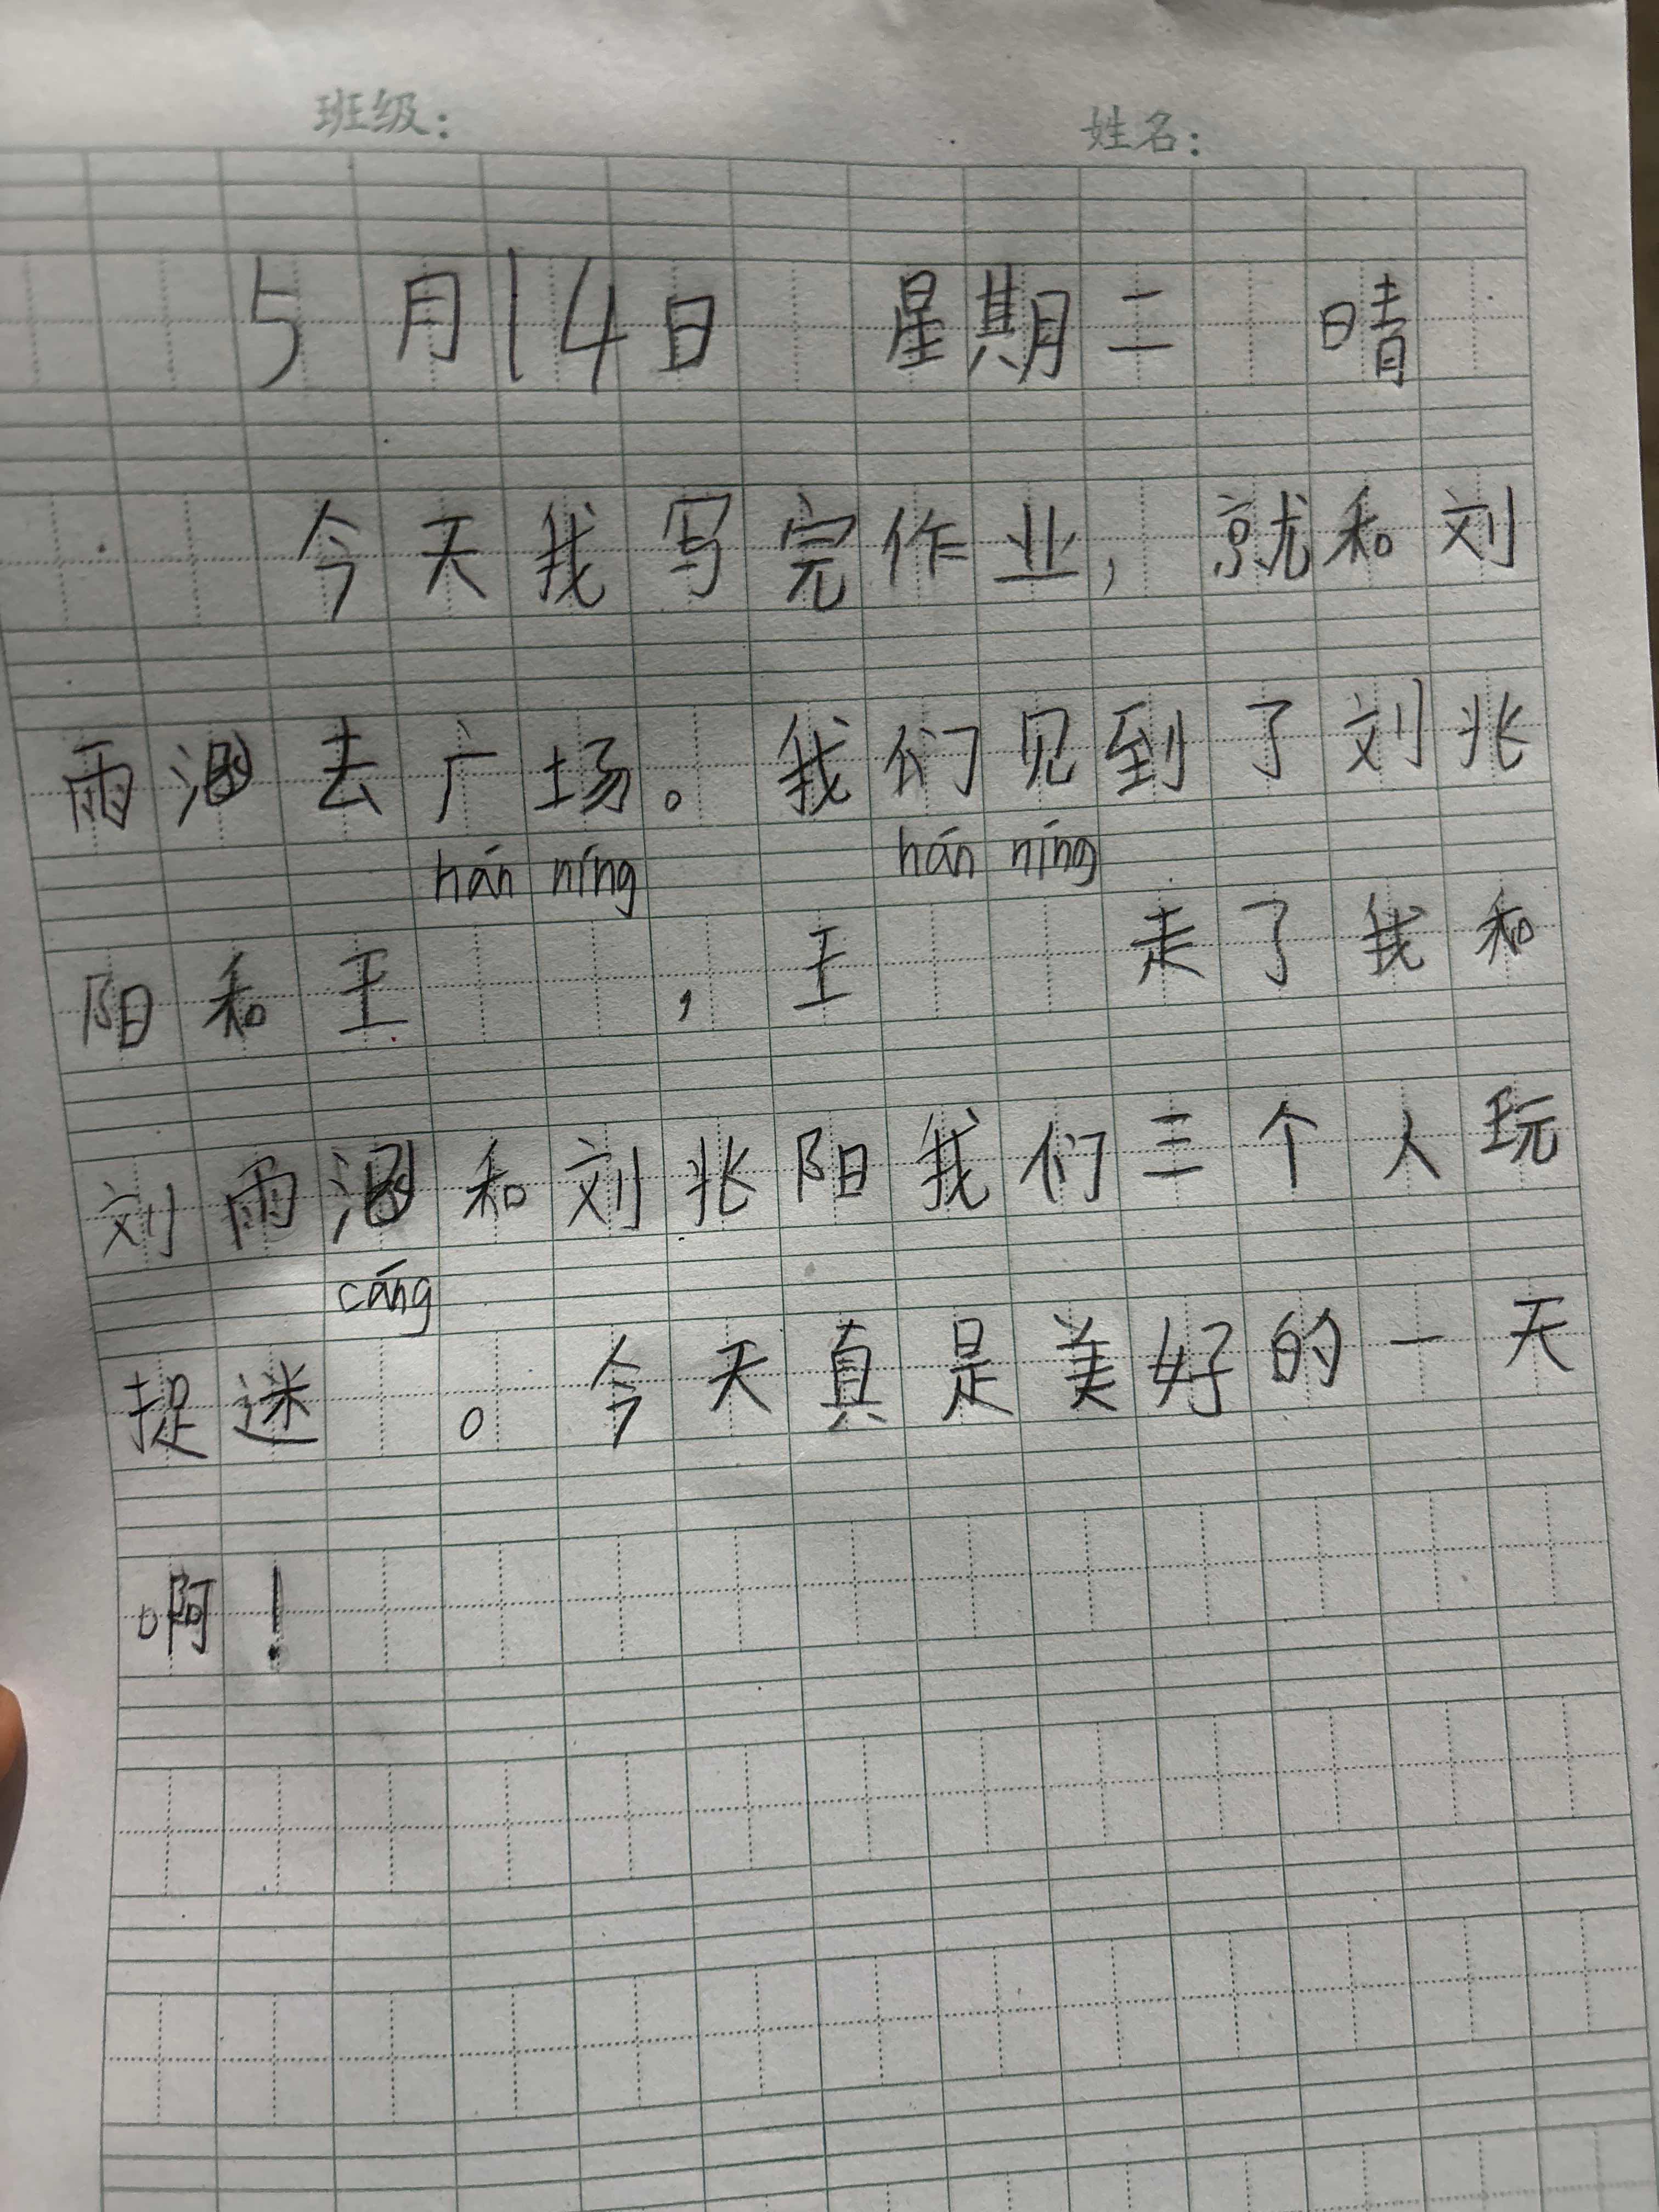 班级： 姓名：
5月14日 星期二 晴
今天我写完作业，就和刘
雨涵去广场。我们见到了刘兆
hán níng hán níng
阳和王 ，王 走了我和
刘雨涵和刘兆阳我们三个人玩
cáng
捉迷 。今天真是美好的一天
啊！